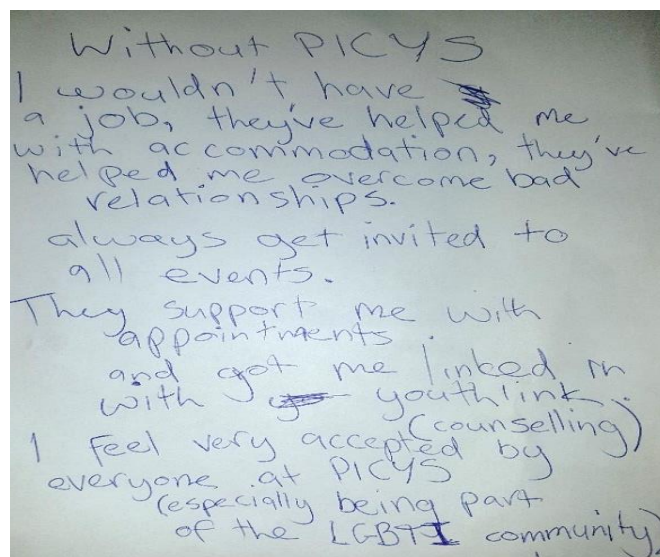 Without PICYS
I wouldn't have
a job, they've helped me
with accommodation, they've
helped me overcome bad
relationships.
always get invited to
all events.
They support me with
appointments.
and got me linked in
with youthlink.
(counselling)
I feel very accepted by
everyone at PICYS
(especially being part
of the LGBTI community)